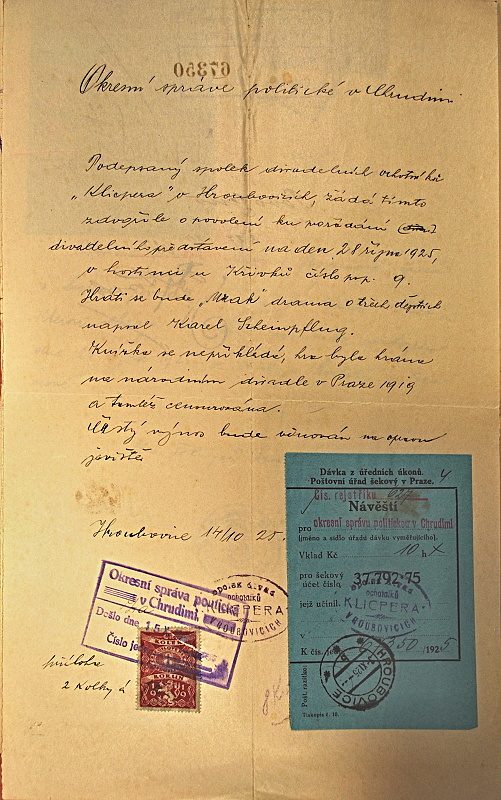 67350
Okresní správě politické v Chrudimi
Podepsaný spolek divadelních ochotníků
„Klicpera" v Hroubovicích, žádá tímto
zdvořile o povolení ku pořádání
divadelního představení na den 28 října 1925,
v hostinci u Křivků číslo pop. 9.
Hráti se bude „Mrak" drama o třech dějstvích
napsal Karel Scheinpflug.
Knížka se nepřikládá, hra byla hrána
na národním divadle v Praze 1919
a tamtéž censurována.
Čistý výnos bude věnován na opravu
jeviště
Hroubovice 14/10 25.
Okresní správa politická
v Chrudimi
Došlo dne 15
Číslo je
KOLEK
KORUN
SPOLEK
ochotníků
KLICPERA
v HROUBOVICÍCH
příloha
2 Kolky á
Dávka z úředních úkonů. 4
Poštovní úřad šekový v Praze.
Čís. rejstříku
Návěští
pro okresní správu politickou v Chrudimi
(jméno a sídlo úřadu dávku vyměřujícího).
Vklad Kč 10 h x
pro šekový
účet číslo 37.792-75
jejž učinil
ochotníků
KLICPERA
v HROUBOVICÍCH
v
K čís. jed. 250 / 1925
HROUBOVICE
Pošt. razítko:
Tiskopis č. 10.